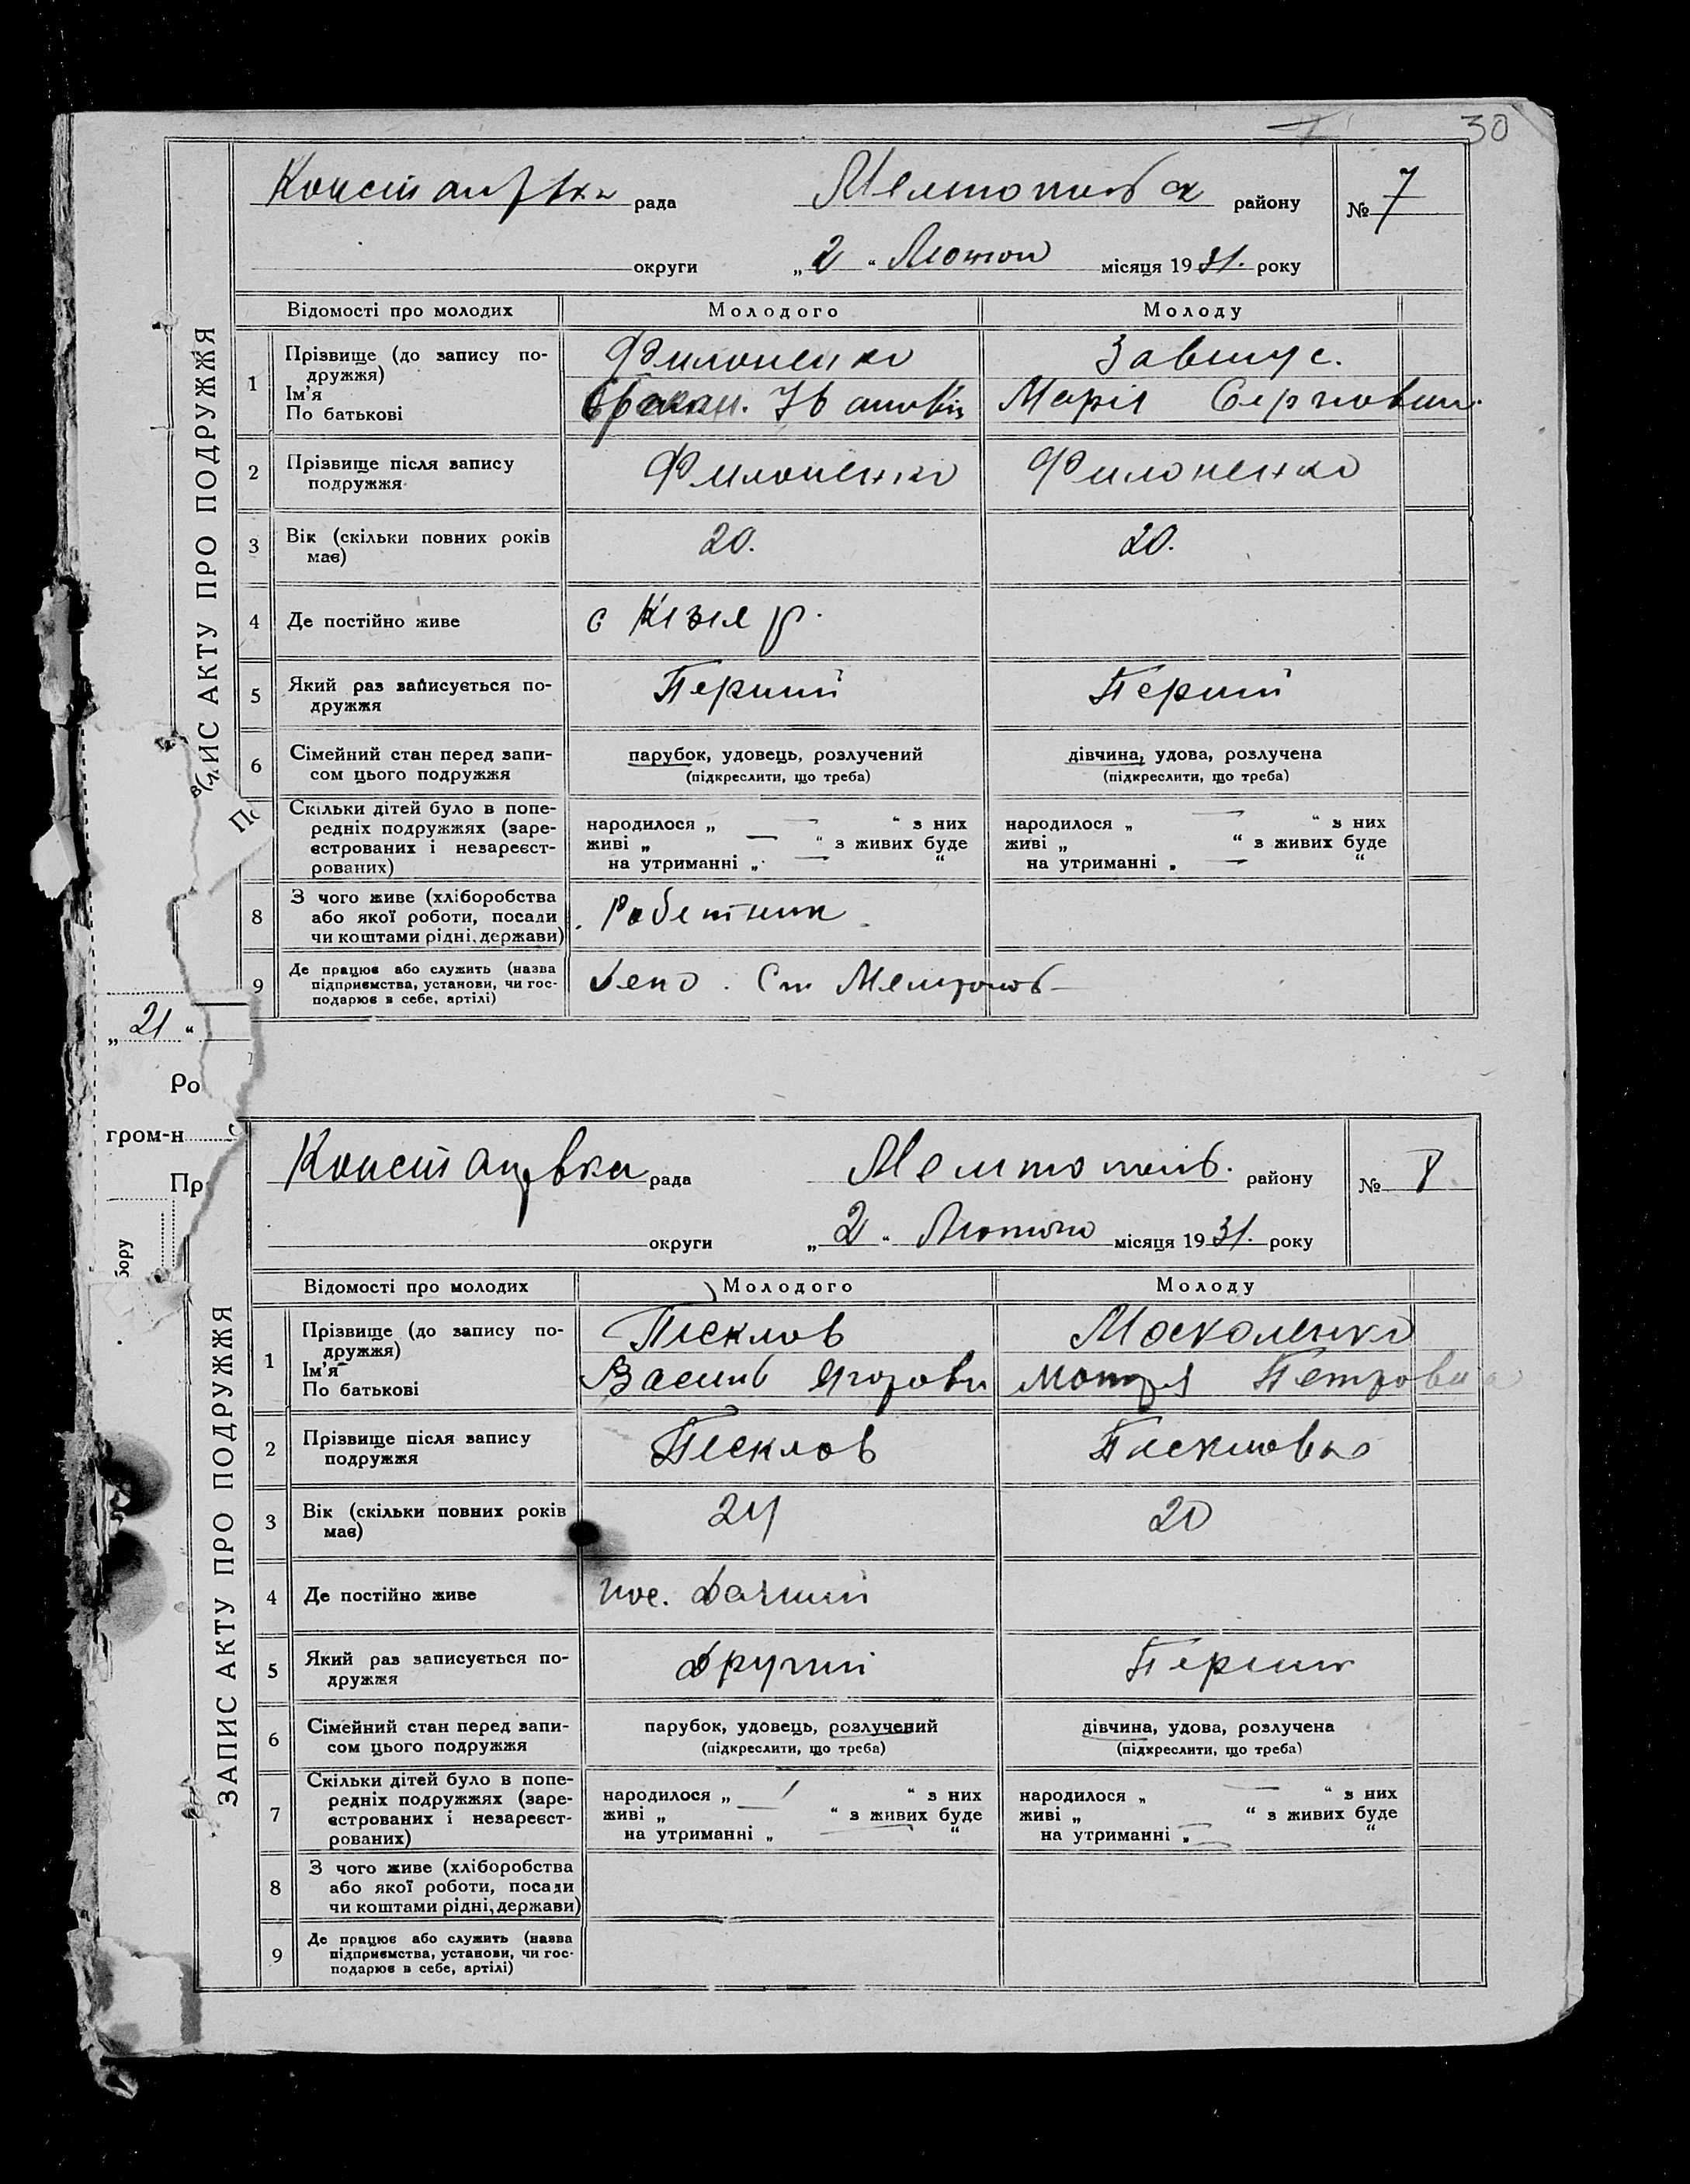 30
ЗАПИС АКТУ ПРО ПОДРУЖЖЯ
Констант рада Мелитопольськ району № 7
округи „2“ Лютого місяця 1931. року
Відомості про молодих Молодого Молоду
1 Прізвище (до запису по- Филоненко
дружжя)
Ім'я Ивановіч Марія
По батькові
2 Прізвище після запису Филоненко Филоненко
подружжя
3 Вік (скільки повних років 20. 20.
має)
4 Де постійно живе с Кізіяр.
5 Який раз записується по- Перший Перший
дружжя
6 Сімейний стан перед запи- парубок, удовець, розлучений дівчина, удова, розлучена
сом цього подружжя (підкреслити, що треба) (підкреслити, що треба)
Скільки дітей було в попе- народилося „ — “ з них народилося „ — “ з них
редніх подружжях (заре- живі „ — “ з живих буде живі „ “ з живих буде
єстрованих і незареєст- на утриманні „ — “ на утриманні „ — “
рованих)
8 З чого живе (хліборобства Работник
або якої роботи, посади
чи коштами рідні, держави)
9 Де працює або служить (назва Депо. Ст Мелитоп
підприємства, установи, чи гос-
подарює в себе, артілі)
„ 21 “
Ро
гром-н
Пр
бору
ЗАПИС АКТУ ПРО ПОДРУЖЖЯ
Констан вка рада Мелитопольс. району № 8
округи „2“ Лютого місяця 1931. року
Відомості про молодих Молодого Молоду
1 Прізвище (до запису по- Песклов Москаленко
дружжя)
Ім'я Василь Ягорови Мотря Петровна
По батькові
2 Прізвище після запису Песклов Пескловa
подружжя
3 Вік (скільки повних років 24 20
має)
4 Де постійно живе пос. Дачний
5 Який раз записується по- Другий Перший
дружжя
6 Сімейний стан перед запи- парубок, удовець, розлучений дівчина, удова, розлучена
сом цього подружжя (підкреслити, що треба) (підкреслити, що треба)
7 Скільки дітей було в попе- народилося „ “ з них народилося „ — “ з них
редніх подружжях (заре- живі „ — “ з живих буде живі „ — “ з живих буде
єстрованих і незареєст- на утриманні „ — “ на утриманні „ — “
рованих)
8 З чого живе (хліборобства
або якої роботи, посади
чи коштами рідні, держави)
9 Де працює або служить (назва
підприємства, установи, чи гос-
подарює в себе, артілі)